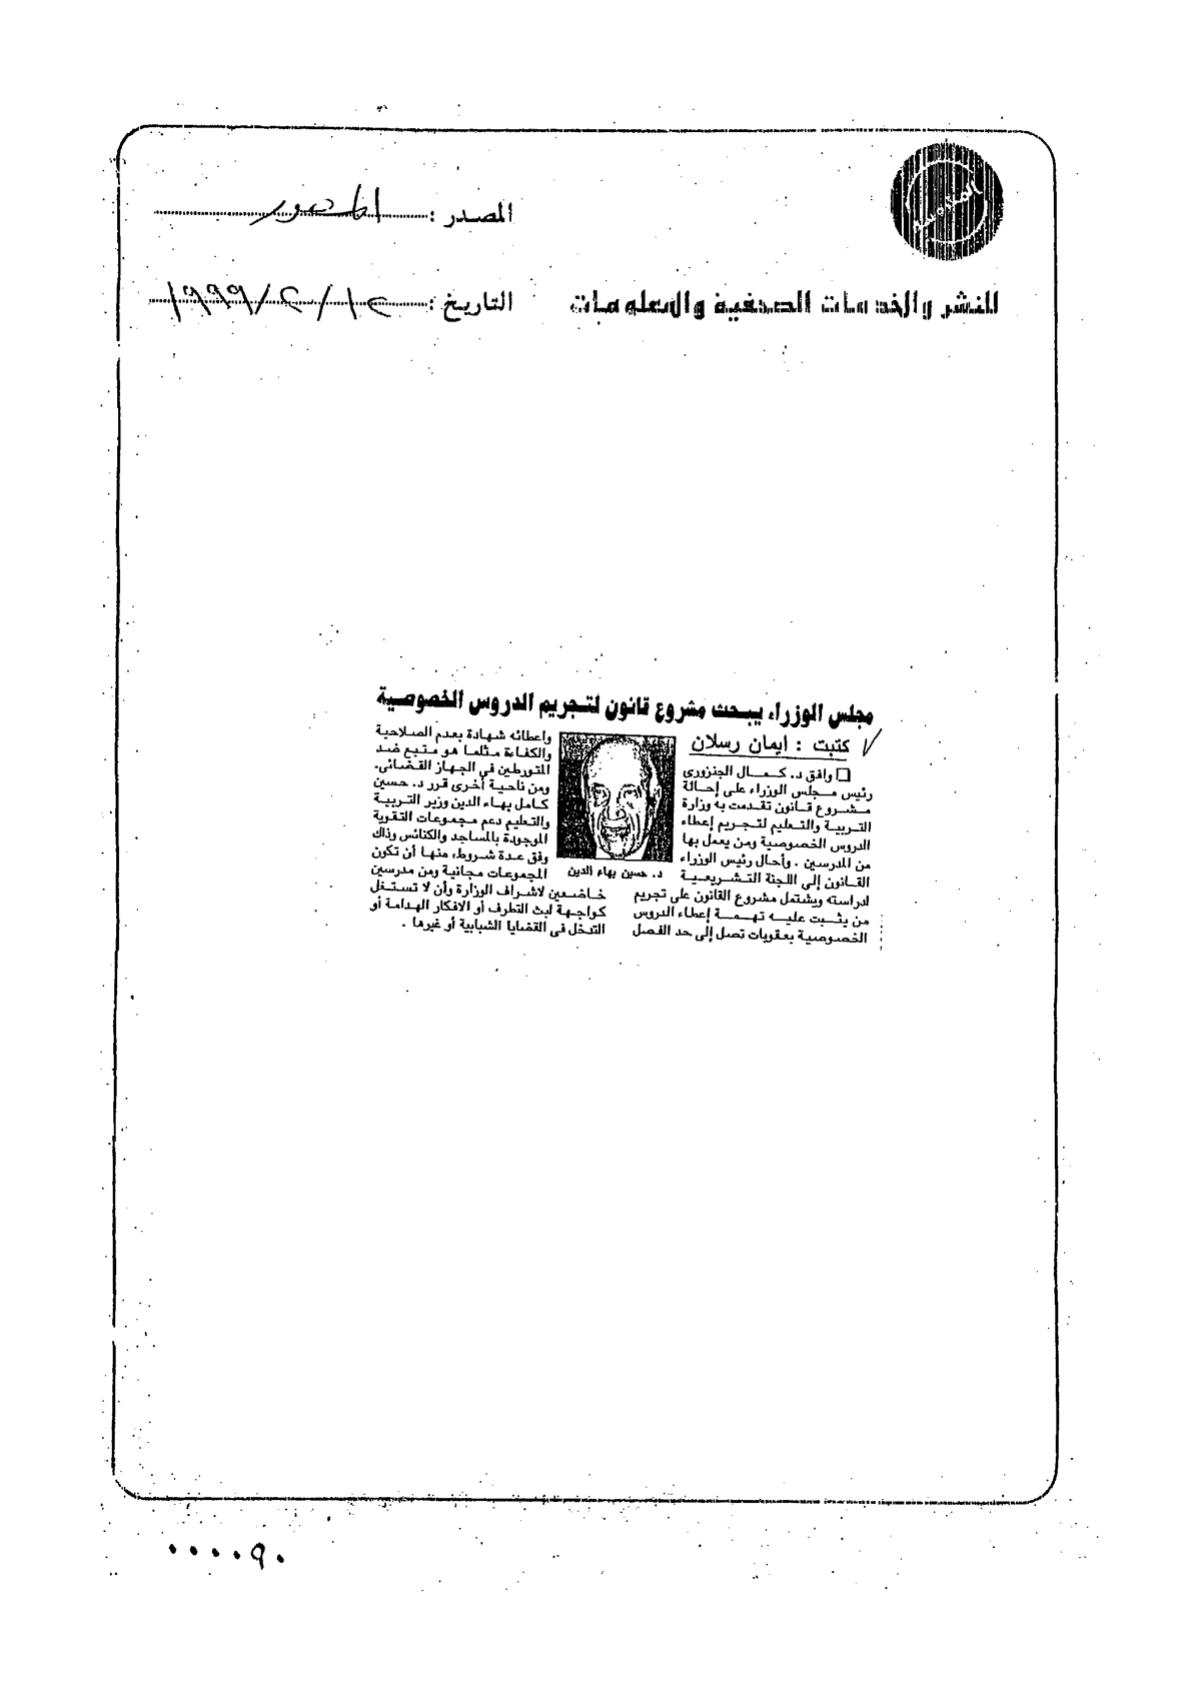 المصدر : المصور
للنشر والخدمات الصحفية والمعلومات
التاريخ : ١٢/٢/١٩٩٩
مجلس الوزراء يبحث مشروع قانون لتجريم الدروس الخصوصية
كتبت : ايمان رسلان
وافق د. كمال الجنزورى
رئيس مجلس الوزراء على إحالة
مشروع قانون تقدمت به وزارة
التربية والتعليم لتجريم إعطاء
الدروس الخصوصية ومن يعمل بها
من المدرسين . وأحال رئيس الوزراء
القانون إلى اللجنة التشريعية
لدراسته ويشتمل مشروع القانون على تجريم
من يثبت عليه تهمة إعطاء الدروس
الخصوصية بعقوبات تصل إلى حد الفصل
د. حسين بهاء الدين
واعطائه شهادة بعدم الصلاحية
والكفاءة مثلما هو متبع ضد
المتورطين فى الجهاز القضائى.
ومن ناحية أخرى قرر د. حسين
كامل بهاء الدين وزير التربية
والتعليم دعم مجموعات التقوية
الموجودة بالمساجد والكنائس وذلك
وفق عدة شروط، منها أن تكون
المجموعات مجانية ومن مدرسين
خاضعين لاشراف الوزارة وأن لا تستغل
كواجهة لبث التطرف أو الافكار الهدامة أو
التدخل فى القضايا الشبابية أو غيرها .
٠٠٠٠٩٠